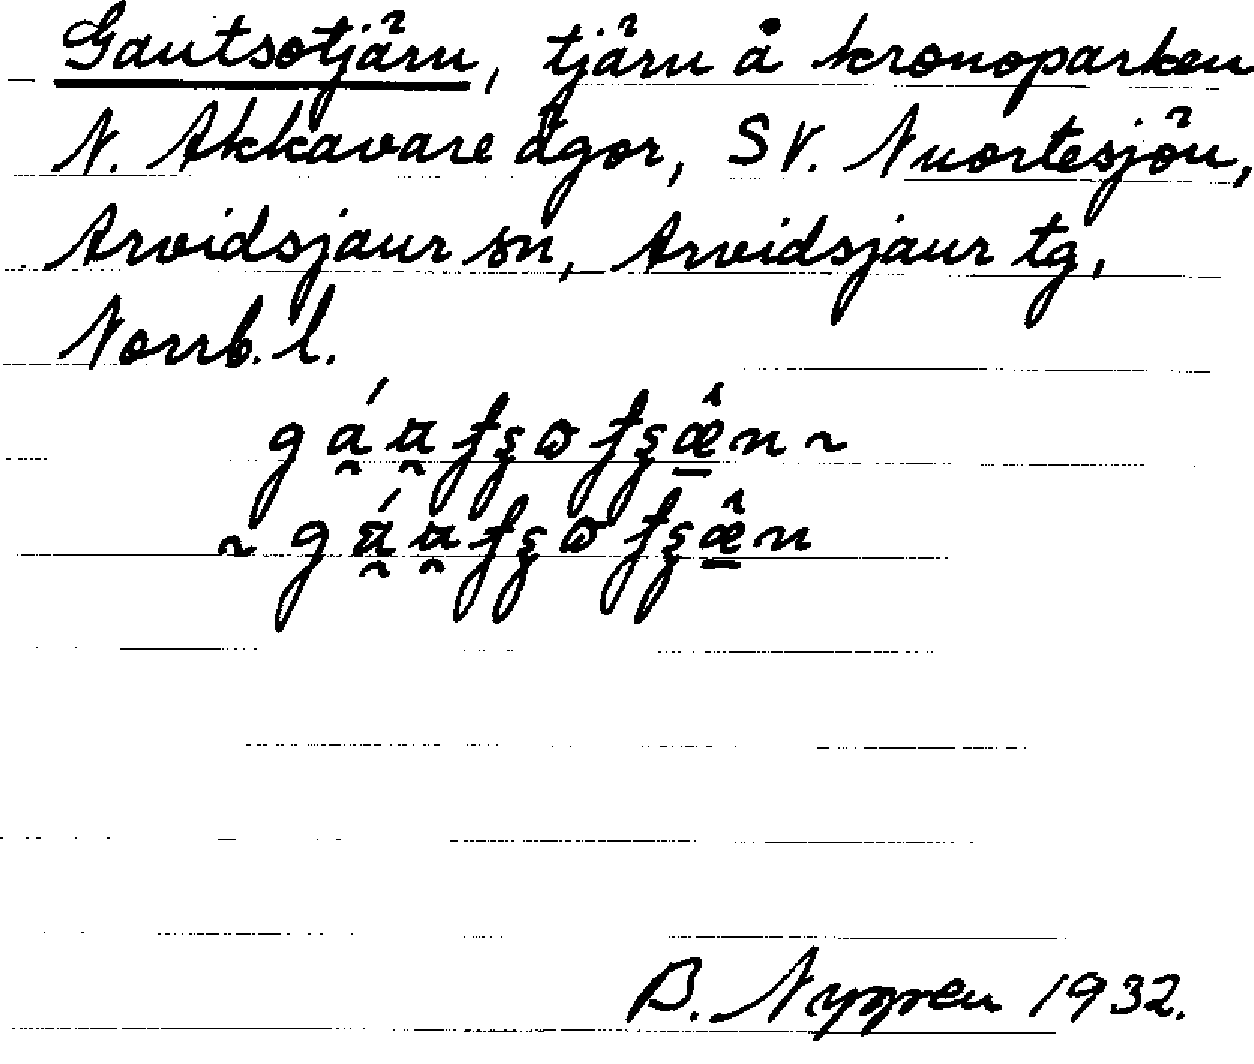 Gautsotjärn, tjärn å kronoparken
N. Akkavare ägor, SV. Nuortesjön,
Arvidsjaur sn, Arvidsjaur tg,
Norrb. l.
B. Nygren 1932.